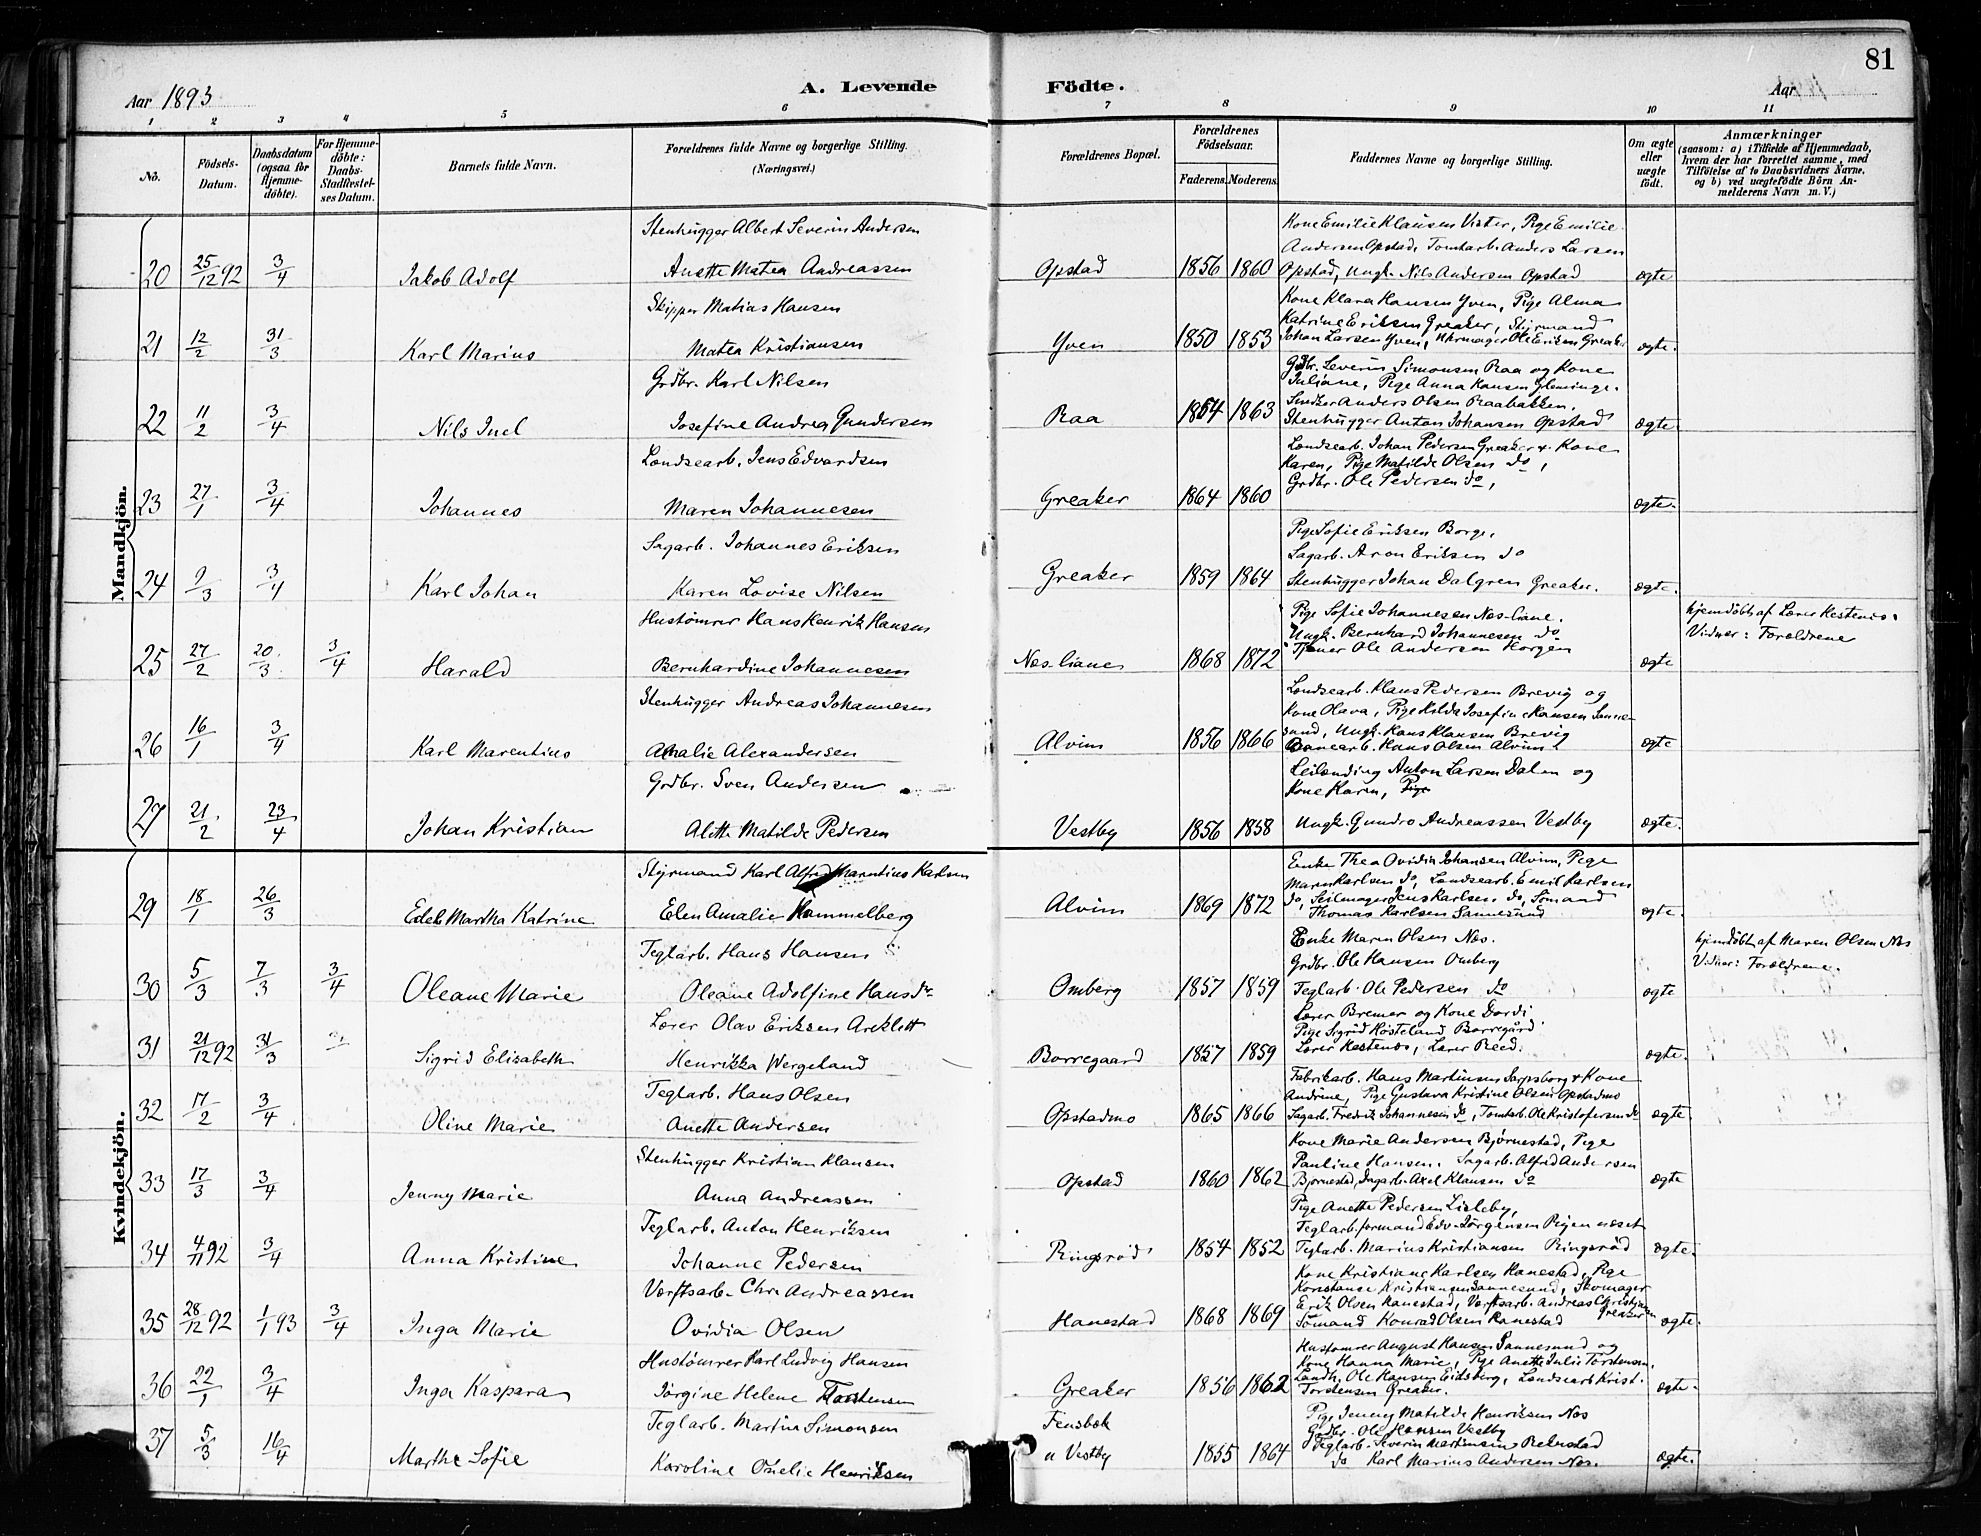 81
Aar 1893
A. Levende
Födte.
Aar
1 2 3 4 5 6 7 8 9 10 11
No.
Födsels-Datum.
Daabsdatum (ogsaa for Hjemme-döbte).
For Hjemme-döbte: Daabs-Stadfæstel-ses Datum.
Barnets fulde Navn.
Forældrenes fulde Navne og borgerlige Stilling. (Næringsvei.)
Forældrenes Bopæl.
Forældrenes Födselsaar.
Faderens. Moderens.
Faddernes Navne og borgerlige Stilling.
Om ægte eller uægte födt.
Anmærkninger
(saasom: a) i Tilfælde af Hjemmedaab, hvem der har forrettet samme, med Tilföielse af to Daabsvidners Navne, og b) ved uægtefödte Börn Anmelderens Navn m. V.)
Mandkjön.
Stenhugger Albert Severin Andersen
Kone Emilie Klausen Vister, Pige Emilie
Andersen Opstad, Tomtarb. Anders Larsen
20 25/12 92 3/4 Jakob Adolf Anette Matea Andreassen Opstad 1856 1860 Opstad, Ungk. Nils Andersen Opstad ægte
Skipper Matias Hansen
Kone Klara Hansen Yven, Pige Alma
Katrine Eriksen Greaker, Styrmand
21 12/2 31/3 Karl Marius Matea Kristiansen Yven 1850 1853 Johan Larsen Yven, Ole Eriksen Greaker ægte.
Grdbr. Karl Nilsen
Gdbr. Severin Simonsen Raa og Kone
Juliane, Pige Anna Hansen Gleminge.
Snedker Anders Olsen Raabakken,
22 11/2 3/4 Nils Juel Josefine Andrea Gundersen Raa 1864 1863 Stenhugger Anton Johansen Opstad ægte
Landsearb. Jens Edvardsen
Landsearb. Johan Pedersen Greaker & Kone
Karen, Pige Matilde Olsen do,
Grdbr. Ole Pedersen do,
23 27/1 3/4 Johannes Maren Johannesen Greaker 1864 1860 ægte.
Sagarb. Johannes Eriksen
Pige Sofie Eriksen Borge,
Sagarb. Aron Eriksen do
24 9/3 3/4 Karl Johan Karen Lovise Nilsen Greaker 1859 1864 Stenhugger Johan Dalgren Greaker. ægte.
Hustømrer Hans Henrik Hansen
Pige Sofie Johannesen Næs-liane.
Ungk. Bernhard Johannesen do
hjemdöbt af Lærer Hestenes.
Vidner: Forældrene
25 27/2 20/3 3/4 Harald Bernhardine Johannesen Næs-liane 1868 1872 Tjener Ole Andersen Horgen ægte
Stenhugger Andreas Johannesen
Landsearb. Klaus Pedersen Brevig og
Kone Olava, Pige Hilda Josefine Hansen Sanne-
sund, Ungk. Hans Klausen Brevig
26 16/1 3/4 Karl Marentius Amalie Alexandersen Alvim 1856 1866 Banearb. Hans Olsen Alvim ægte
Grdbr. Sven Andersen
Leilænding Anton Larsen Dalen og
Kone Karen, Pige
27 21/2 23/4 Johan Kristian Alette Matilde Pedersen Vestby 1856 1858 Ungk. Gundro Andreassen Vestby ægte.
Kvindekjön.
Styrmand Karl Alfred Marentius Karlsen
Enke Thea Ovidia Johansen Alvim, Pige
Maren Karlsen do, Landsearb. Emil Karlsen
do, Seilmager Jens Karlsen do, Sömand
29 18/1 26/3 Edel Martha Katrine Elen Amalie Hammelberg Alvim 1869 1872 Thomas Karlsen Sannesund ægte.
Teglarb. Hans Hansen
Enke Maren Olsen Næs.
Grdbr. Ole Hansen Omberg
hjemdöbt af Maren Olsen Næs
Vidner: Forældrene.
30 5/3 7/3 3/4 Oleane Marie Oleane Adolfine Hansdr Omberg 1857 1859 Teglarb. Ole Pedersen do ægte
Lærer Olav Eriksen Areklett
Lærer Bremer og Kone Dordi.
Pige Sigrid Hösteland Borregård.
31 21/12 92 31/3 Sigrid Elisabeth Henrikka Wergeland Borregaard 1857 1859 Lærer Hestenes, Lærer Reed. ægte.
Teglarb. Hans Olsen
Fabrikarb. Hans Martinsen Sarpsborg & Kone
Andrine, Pige Gustava Kristine Olsen Opstadmo
32 17/2 3/4 Oline Marie Anette Andersen Opstadmo 1865 1866 Sagarb. Fredrik Johannesen do, Tomtarb. Ole Kristofersen do ægte
Stenhugger Kristian Klausen
Kone Marie Andersen Bjørnestad, Pige
Pauline Hansen. Sagarb. Alfred Andersen
33 17/3 3/4 Jenny Marie Anna Andreassen Opstad 1860 1862 Bjørnestad, Sagarb. Axel Klausen do ægte
Teglarb. Anton Henriksen
Pige Anette Pedersen Lisleby,
Teglarb.formand Edv. Jörgensen
34 4/11 92 3/4 Anna Kristine Johanne Pedersen Ringsrød 1854 1852 Teglarb. Marius Kristiansen Ringsrød ægte.
Værftsarb. Chr. Andreassen
Kone Kristiane Karlsen Hanestad, Pige
Konstanse Kristiansen Sannesund, Skomager
Erik Olsen Hanestad, Værftsarb. Andreas Christiansen Greaker
35 28/12 92 1/1 93 3/4 Inga Marie Ovidia Olsen Hanestad 1868 1869 Sömand Konrad Olsen Hanestad ægte.
Hustømrer Karl Ludvig Hansen
Hustømrer August Hansen Sannesund og
Kone Hanna Marie, Pige Anette Julie Torstensen.
Landh. Ole Hansen Eidsberg, Landsearb Krist.
36 22/1 3/4 Inga Kaspara Jörgine Helene Torstensen Greaker 1856 1862 Torstensen Greaker. ægte.
Teglarb. Martin Simonsen
Fensbæk
Pige Jenny Matilde Henriksen Næs
Grdbr. Ole Hansen Vestby
Teglarb. Severin Martinsen
37 5/3 16/4 Marthe Sofie Karoline Henriksen u Vestby 1855 1864 do Karl Marius Andersen Næs. ægte.